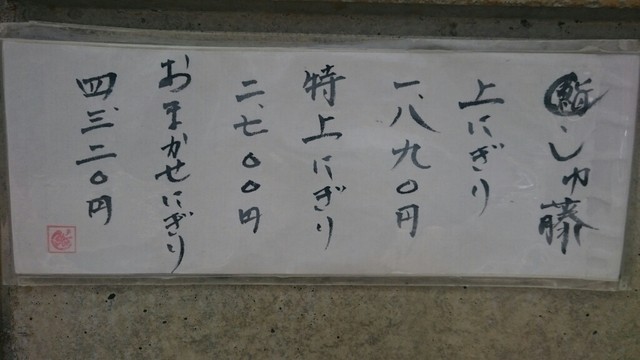 鮨しゅ藤
上にぎり
一、八九〇円
特上にぎり
二、七〇〇円
おまかせにぎり
四、三二〇円